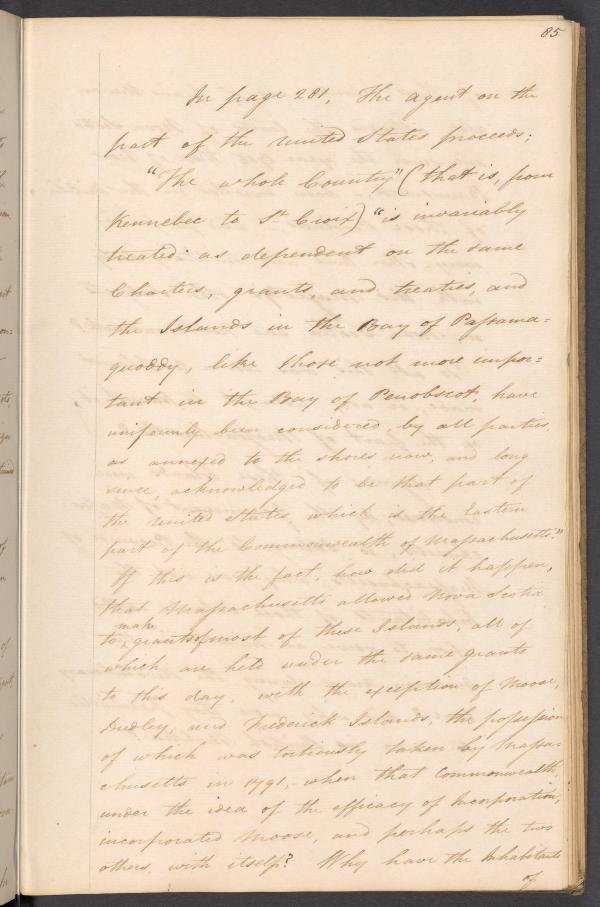 85
In page 281, The agent on the
part of the United States proceeds;
"The whole Country" (that is, from
Kennebec to St Croix) "is invariably
treated as dependent on the same
Charters, grants, and treaties, and
the Islands in the Bay of Passama=
quoddy, like those not more impor=
tant in the Bay of Penobscot, have
uniformly been considered, by all parties,
as annexed to the shores now, and long
since, acknowledged to be that part of
the United States which is the Eastern
part of the Commonwealth of Massachusetts."
If this is the fact, how did it happen,
that Massachusetts allowed Nova Scotia
make
to grants of most of these Islands, all of
which are held under the same grants
to this day, with the exception of Moose,
Dudley, and Frederick Islands, the possession
of which was tortiously taken by Massa=
chusetts in 1791,- when that Commonwealth,
under the idea of the efficacy of Incorporation,
incorporated Moose, and perhaps the two
others, with itself? Why have the Inhabitants
of